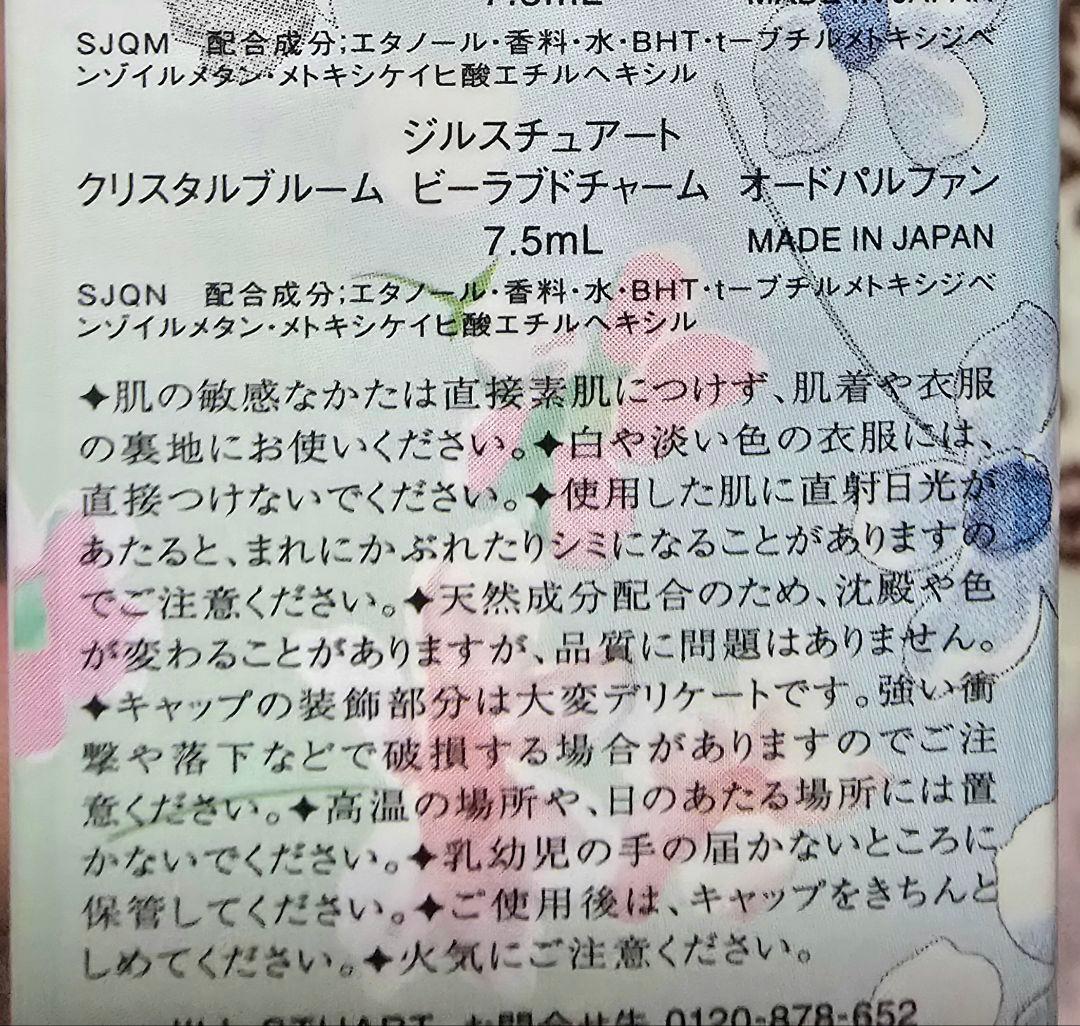 7.5mL MADE IN JAPAN
SJQM 配合成分;エタノール・香料・水・BHT・t-ブチルメトキシジベ
ンゾイルメタン・メトキシケイヒ酸エチルヘキシル
ジルスチュアート
クリスタルブルーム ビーラブドチャーム オードパルファン
7.5mL MADE IN JAPAN
SJQN 配合成分;エタノール・香料・水・BHT・t-ブチルメトキシジベ
ンゾイルメタン・メトキシケイヒ酸エチルヘキシル
✦肌の敏感なかたは直接素肌につけず、肌着や衣服
の裏地にお使いください。✦白や淡い色の衣服には、
直接つけないでください。✦使用した肌に直射日光が
あたると、まれにかぶれたりシミになることがありますの
でご注意ください。✦天然成分配合のため、沈殿や色
が変わることがありますが、品質に問題はありません。
✦キャップの装飾部分は大変デリケートです。強い衝
撃や落下などで破損する場合がありますのでご注
意ください。✦高温の場所や、日のあたる場所には置
かないでください。✦乳幼児の手の届かないところに
保管してください。✦ご使用後は、キャップをきちんと
しめてください。✦火気にご注意ください。
JILL STUART お問合せ先 0120-878-652